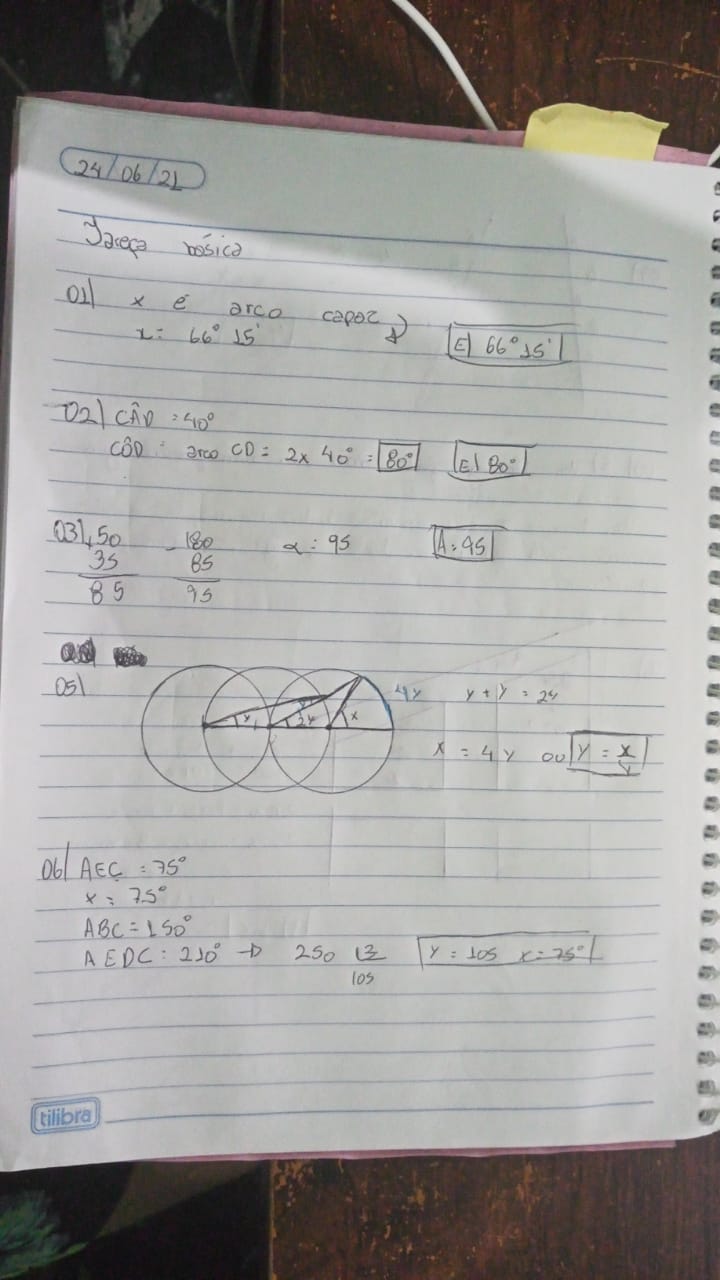 24/06/21
Tarefa básica
01) x é arco capaz
x = 66° 15'
E) 66° 15'
02) CÂD = 40°
CÔD = arco CD = 2x 40° = 80° E) 80°
03) 50 - 180 α = 95 A = 95
35 85
85 95
05)
4y y + y = 2y
y y 2y x
x = 4y ou y = x/y
06) AEC = 75°
x = 75°
ABC = 150°
AEDC = 210° → 250 2
105
y = 105 x = 75°
tilibra